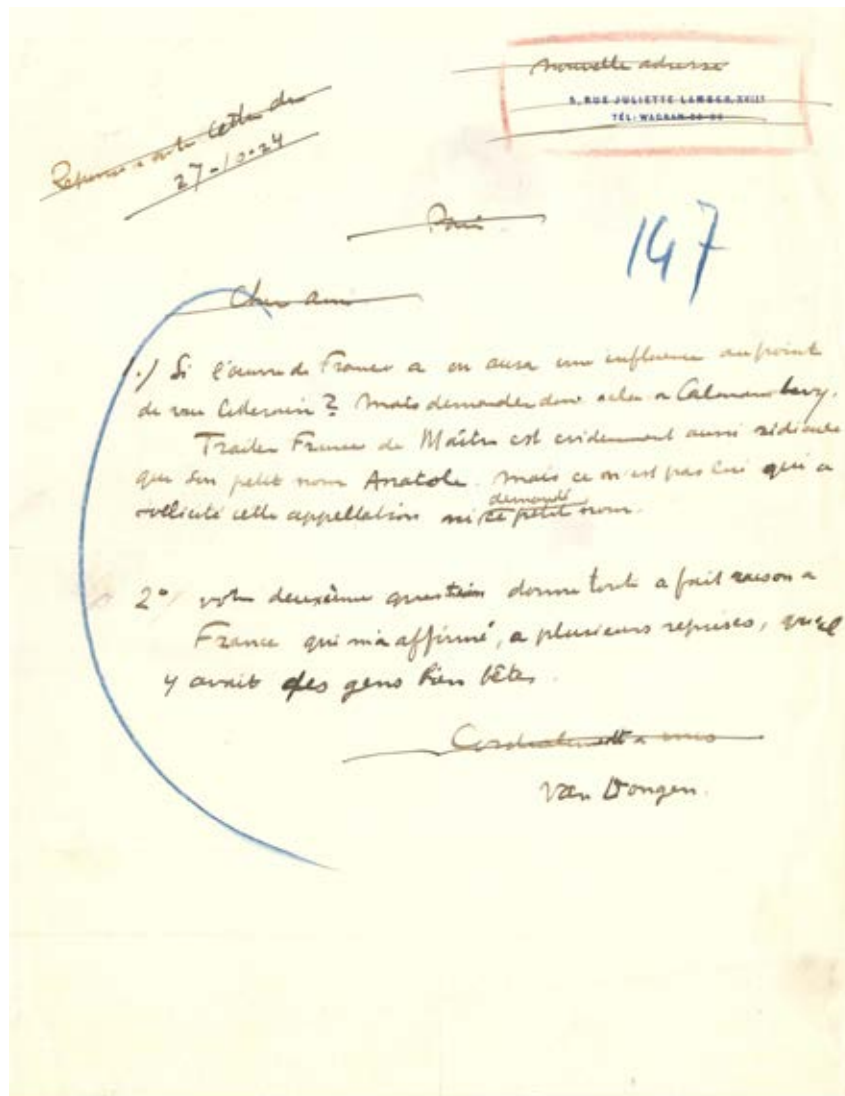 nouvelle adresse
5, RUE JULIETTE LAMBER, XVIIe
TÉL: WAGRAM
Reponse a votre lettre du
27-10-24
Paris
147
Cher ami
1.) Si l'œuvre de France a ou aura une influence au point
de vue litterair? Mais demandez donc cela a Calmann Levy.
Traiter France de Maître est evidemment aussi ridicule
que son petit nom Anatole. Mais ce n'est pas lui qui a
sollicité cette appellation ni demandé ce petit nom.
2° votre deuxième question donne tout a fait raison a
France qui m'a affirmé, a plusieurs reprises, qu'il
y avait des gens bien bêtes.
Cordialement a vous
Van Dongen.